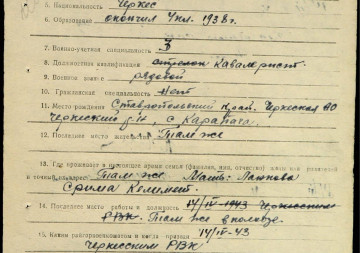 5. Национальность Черкес
6. Образование окончил 4 кл. 1938 г.
7. Военно-учетная специальность 3
8. Должностная квалификация стрелок Кавалерист
9. Военное звание рядовой
10. Гражданская специальность Нет
11. Место рождения Ставропольский край. Черкесская АО
Черкесский р-н, с. Карапаго
12. Последнее место жительства Там же
13. Где проживает в настоящее время семья (фамилия, имя, отчество)
и точный адрес Там же. Мать:
14. Последнее место работы и должность 14/IV-1943 Черкесским
РВК. Там же в колхозе.
15. Каким райвоенкоматом и когда призван 14/IV-43
Черкесским РВК